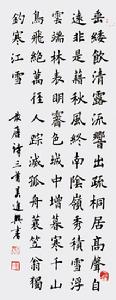 垂緌飲清露流響出疏桐居高聲自
遠非是藉秋風終南陰嶺秀積雪浮
雲端林表明霽色城中增暮寒千山
鳥飛絕萬徑人踪滅孤舟蓑笠翁獨
釣寒江雪
唐詩三首 書